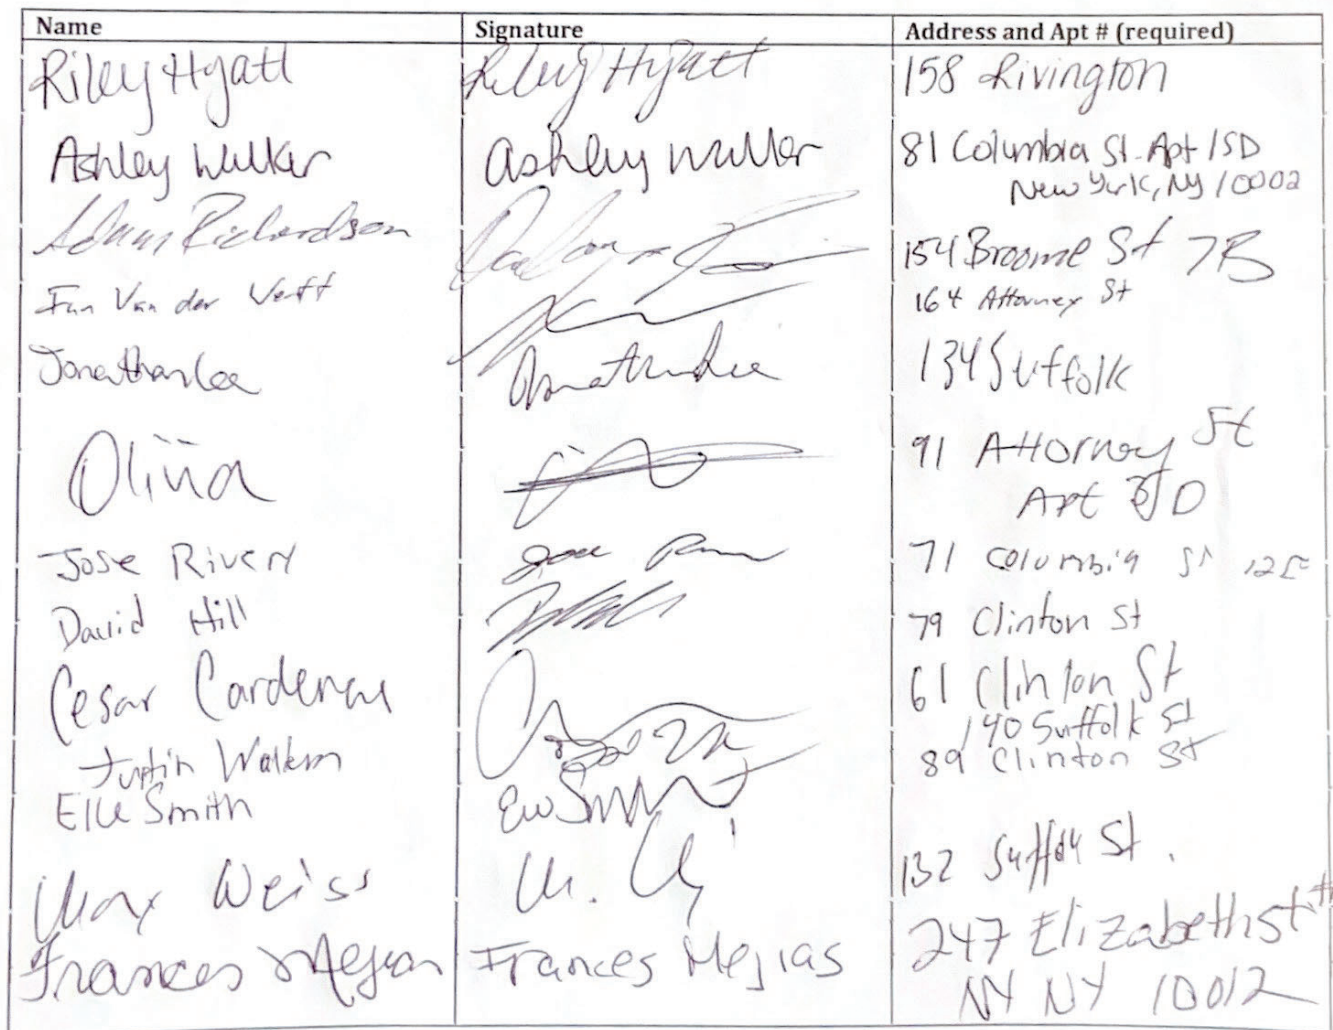 Name Signature Address and Apt # (required)
Riley Hyatt Riley Hyatt 158 Rivington
Ashley Walker Ashley Walker 81 Columbia St. Apt 15D
New York, NY 10002
Adam Richardson 154 Broome St 7B
Van der 164 Attorney St
Jonathan Lee Jonathan Lee 134 Suffolk
Olivia 91 Attorney St
Apt D
Jose Rivera Jose 71 Columbia St 12E
David Hill 79 Clinton St
Cesar Cardenas 61 Clinton St
Justin 140 Suffolk St
Elle Smith Smith 89 Clinton St
Max Weiss M. 132 Suffolk St.
Frances Mejias Frances Mejias 247 Elizabeth St #
NY NY 10012